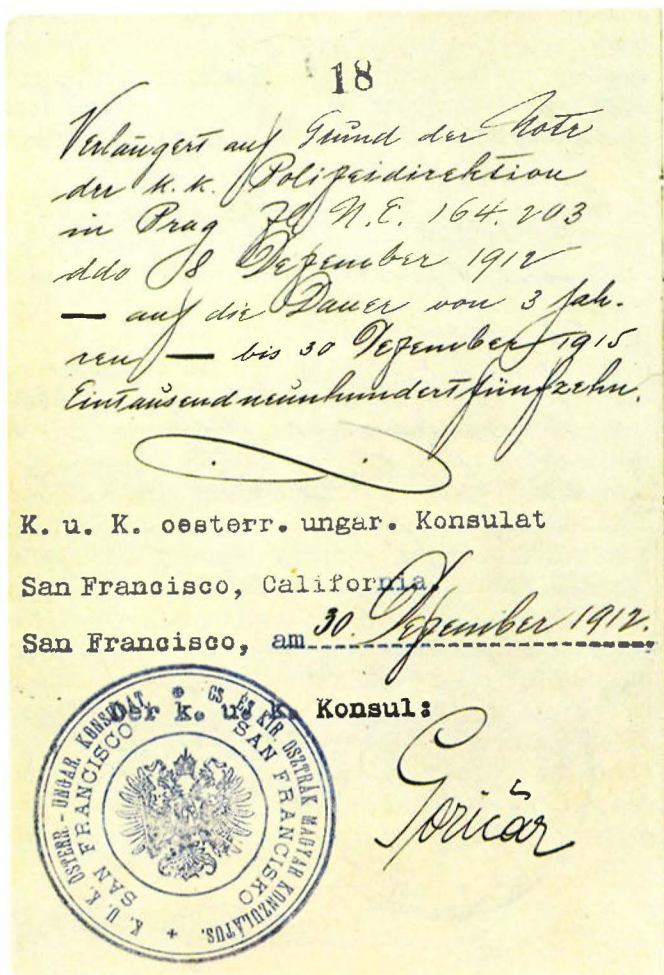 18
Verlängert auf Grund der Note
der k. k. Polizeidirektion
in Prag Zl N.E. 164.203
ddo 8 Dezember 1912
— auf die Dauer von 3 Jah-
ren — bis 30 Dezember 1915
Eintausendneunhundertfünfzehn.
K. u. K. oesterr. ungar. Konsulat
San Francisco, California.
San Francisco, am 30. Dezember 1912.
Der k. u. k. Konsul:
Goričar
K. U. K. ÖSTERR.-UNGAR. KONSULAT
SAN FRANCISCO
CS. ÉS KIR. OSZTRÁK MAGYAR KONZULÁTUS.
SAN FRANCISKO